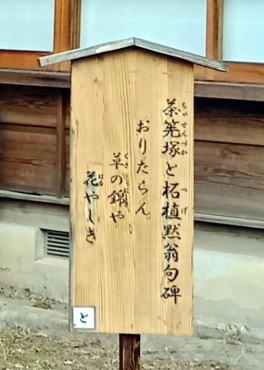 茶筅塚と柘植黙翁句碑
おりたらん
草の錺や
花やしき
と